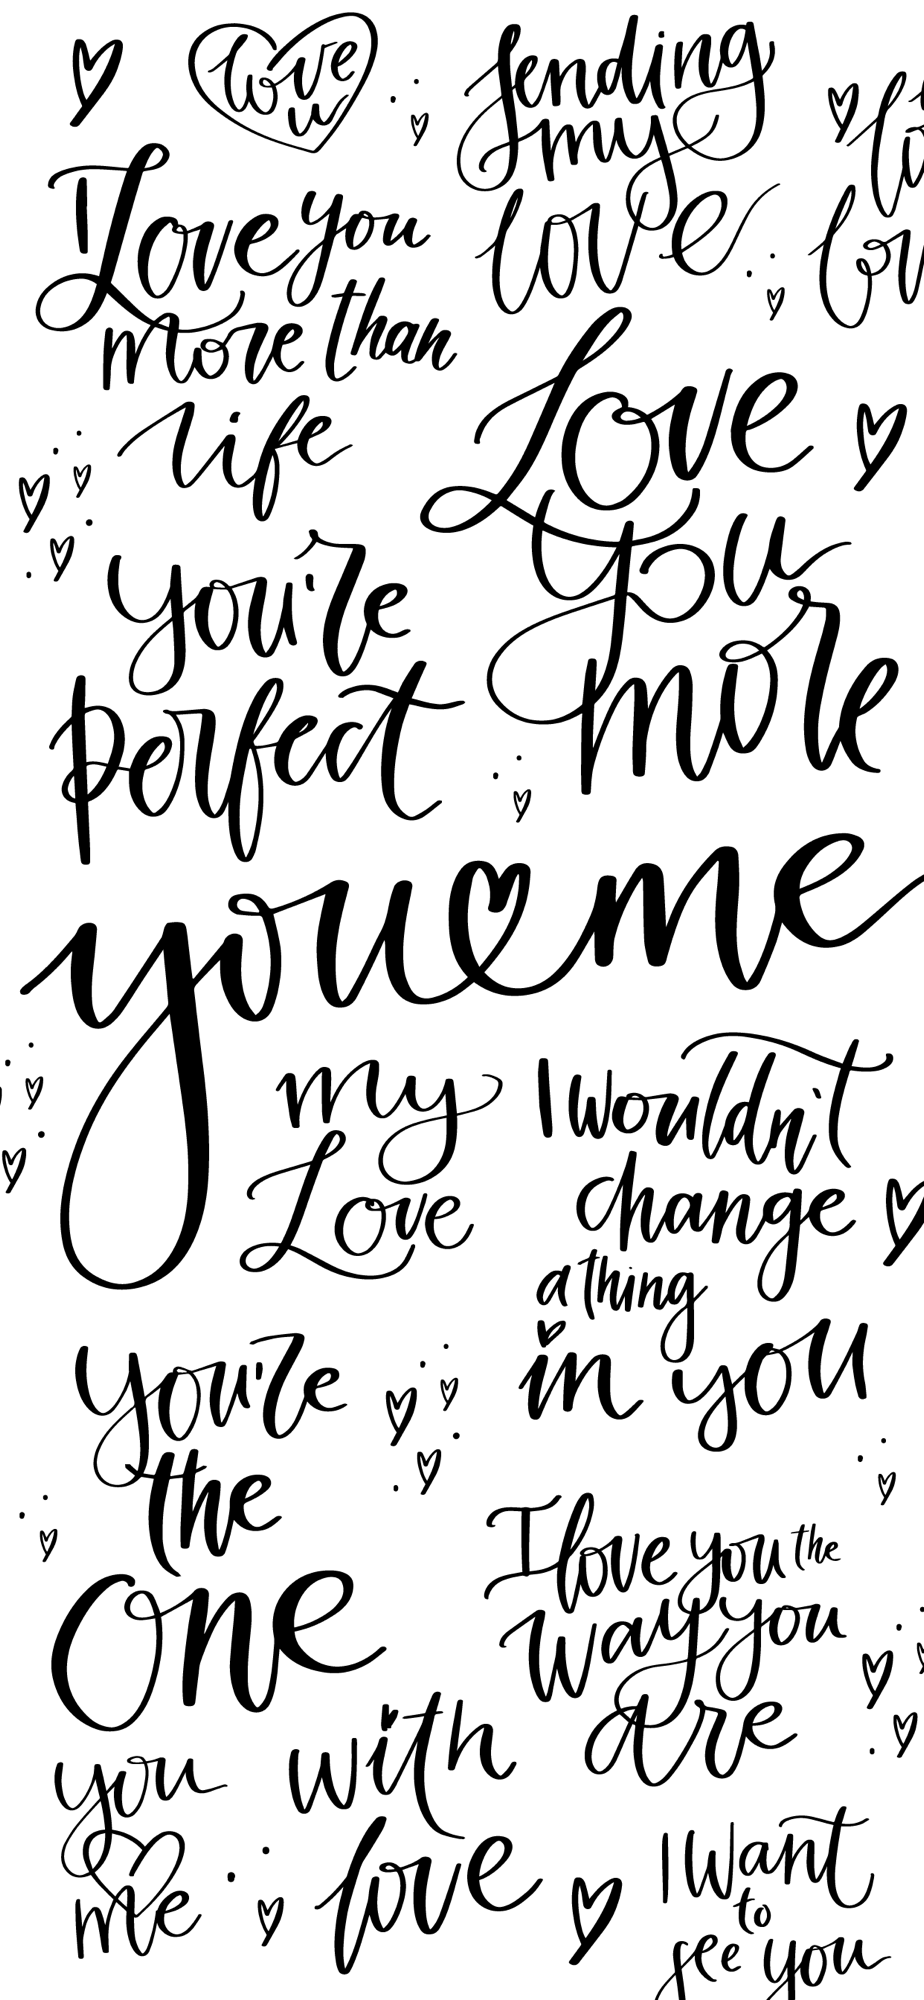 love
u
Sending
my
love
I Love you
more than
life
Love
you
more
you're
perfect
you me
my
Love
I wouldn't
change
a thing
in you
You're
the
One
I love you the
way you
are
you
me
with
love
I want
to
see you